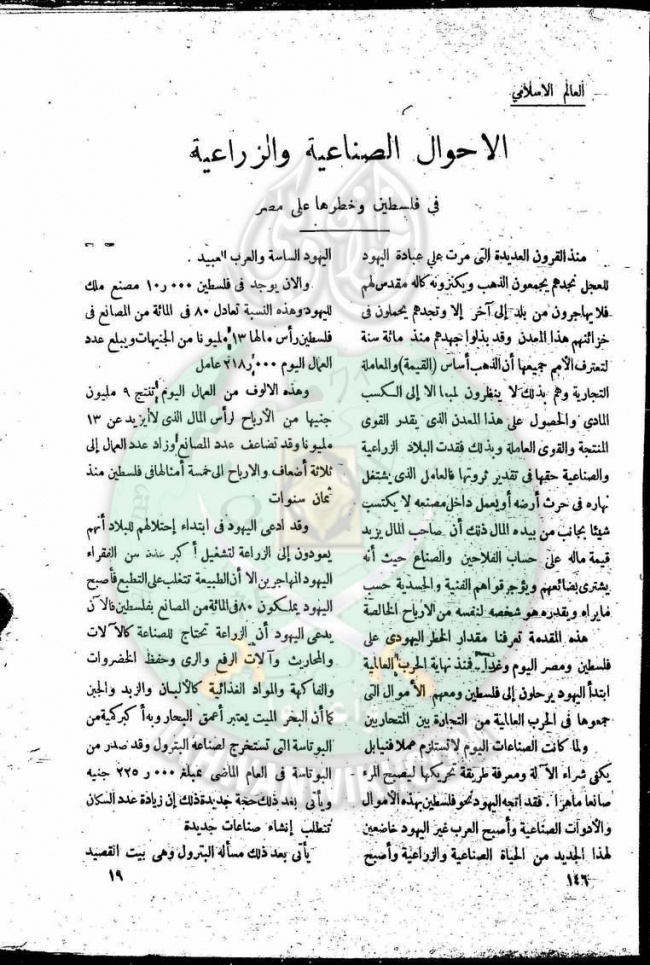 العالم الاسلامي
الاحوال الصناعية والزراعية
في فلسطين وخطرها على مصر
منذ القرون العديدة التى مرت علي عبادة اليهود
للعجل نجدهم يجمعون الذهب ويكنزونه كاله مقدس لهم
فلا يهاجرون من بلد إلى آخر إلا وتجدهم يحملون فى
خزائنهم هذا المعدن وقد بذلوا جهدهم منذ مائة سنة
لتعترف الأمم جميعها أن الذهب أساس (القيمة) والمعاملة
التجارية وهم بذلك لا ينظرون لمبدا الا إلى الكسب
المادي والحصول على هذا المعدن الذى يقدر القوى
المنتجة والقوى العاملة وبذلك فقدت البلاد الزراعية
والصناعية حقها فى تقدير ثروتها فالعامل الذى يشتغل
نهاره فى حرث أرضه أو يعمل داخل مصنعه لا يكتسب
شيئا بجانب من بيده المال ذلك أن صاحب المال يزيد
قيمة ماله على حساب الفلاحين والصناع حيث أنه
يشترى بضائعهم ويؤجر قواهم الفنية والجسدية حسب
مايراه ويقدره هو شخصه لنفسه من الارباح الخالصة
هذه المقدمة تعرفنا مقدار الخطر اليهودى على
فلسطين ومصر اليوم وغداً فمنذ نهاية الحرب العالمية
ابتدأ اليهود يرحلون إلى فلسطين ومعهم الأموال التى
جمعوها فى الحرب العالمية من التجارة بين المتحاربين
ولما كانت الصناعات اليوم لا تستلزم عملا فنيا بل
يكفى شراء الآلة ومعرفة طريقة تحريكها ليصبح المرء
صانعا ماهراً . فقد اتجه اليهود نحو فلسطين بهذه الأموال
والأدوات الصناعية وأصبح العرب غير اليهود خاضعين
لهذا الجديد من الحياة الصناعية والزراعية وأصبح
١٤٦
اليهود الساسة والعرب العبيد .
والان يوجد فى فلسطين ١٠ر٠٠٠ مصنع ملك
لليهود وهذه النسبة تعادل ٨٠ فى المائة من المصانع فى
فلسطين رأس مالها ١٣ مليونا من الجنيهات ويبلغ عدد
العمال اليوم ٢١٨ر٠٠٠ عامل
وهذه الالوف من العمال اليوم تنتج ٩ مليون
جنيها من الأرباح لرأس المال الذى لا يزيد عن ١٣
مليونا وقد تضاعف عدد المصانع وزاد عدد العمال إلى
ثلاثة أضعاف والارباح الى خمسة أمثالها فى فلسطين منذ
ثمان سنوات
وقد ادعى اليهود فى ابتداء إحتلالهم للبلاد أنهم
يعودون إلى الزراعة لتشغيل أكبر عدد من الفقراء
اليهود المهاجرين الا أن الطبيعة تتغلب على التطبع فأصبح
اليهود يملكون ٨٠ فى المائة من المصانع بفلسطين فالآن
يدعى اليهود أن الزراعة تحتاج للصناعة كالآلات
والمحاريث وآلات الرفع والرى وحفظ الخضروات
والفاكهة والمواد الغذائية كالألبان والزبد والجبن
كما أن البحر الميت يعتبر أعمق البحار وبه أكبر كمية من
البوتاسة التى تستخرج لصناعه البترول وقد صدر من
البوتاسة فى العام الماضى بمبلغ ٢٢٥ر٠٠٠ جنيه
ويأتى بعد ذلك حجة جديدة ذلك إن زيادة عدد السكان
تتطلب إنشاء صناعات جديدة
يأتى بعد ذلك مسألة البترول وهى بيت القصيد
١٩